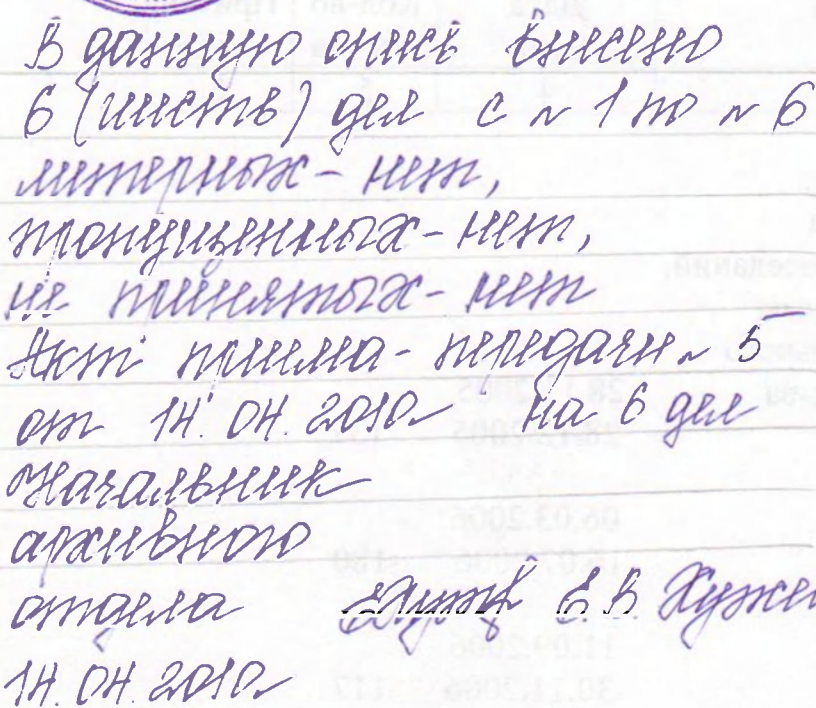 В данную опись внесено
6 (шесть) дел с № 1 по № 6
литерных - нет,
пропущенных - нет,
не принятых - нет
Акт приема-передачи № 5
от 14.04.2010г на 6 дел
Начальник
архивного
отдела Е.В. Хуже
14.04.2010г